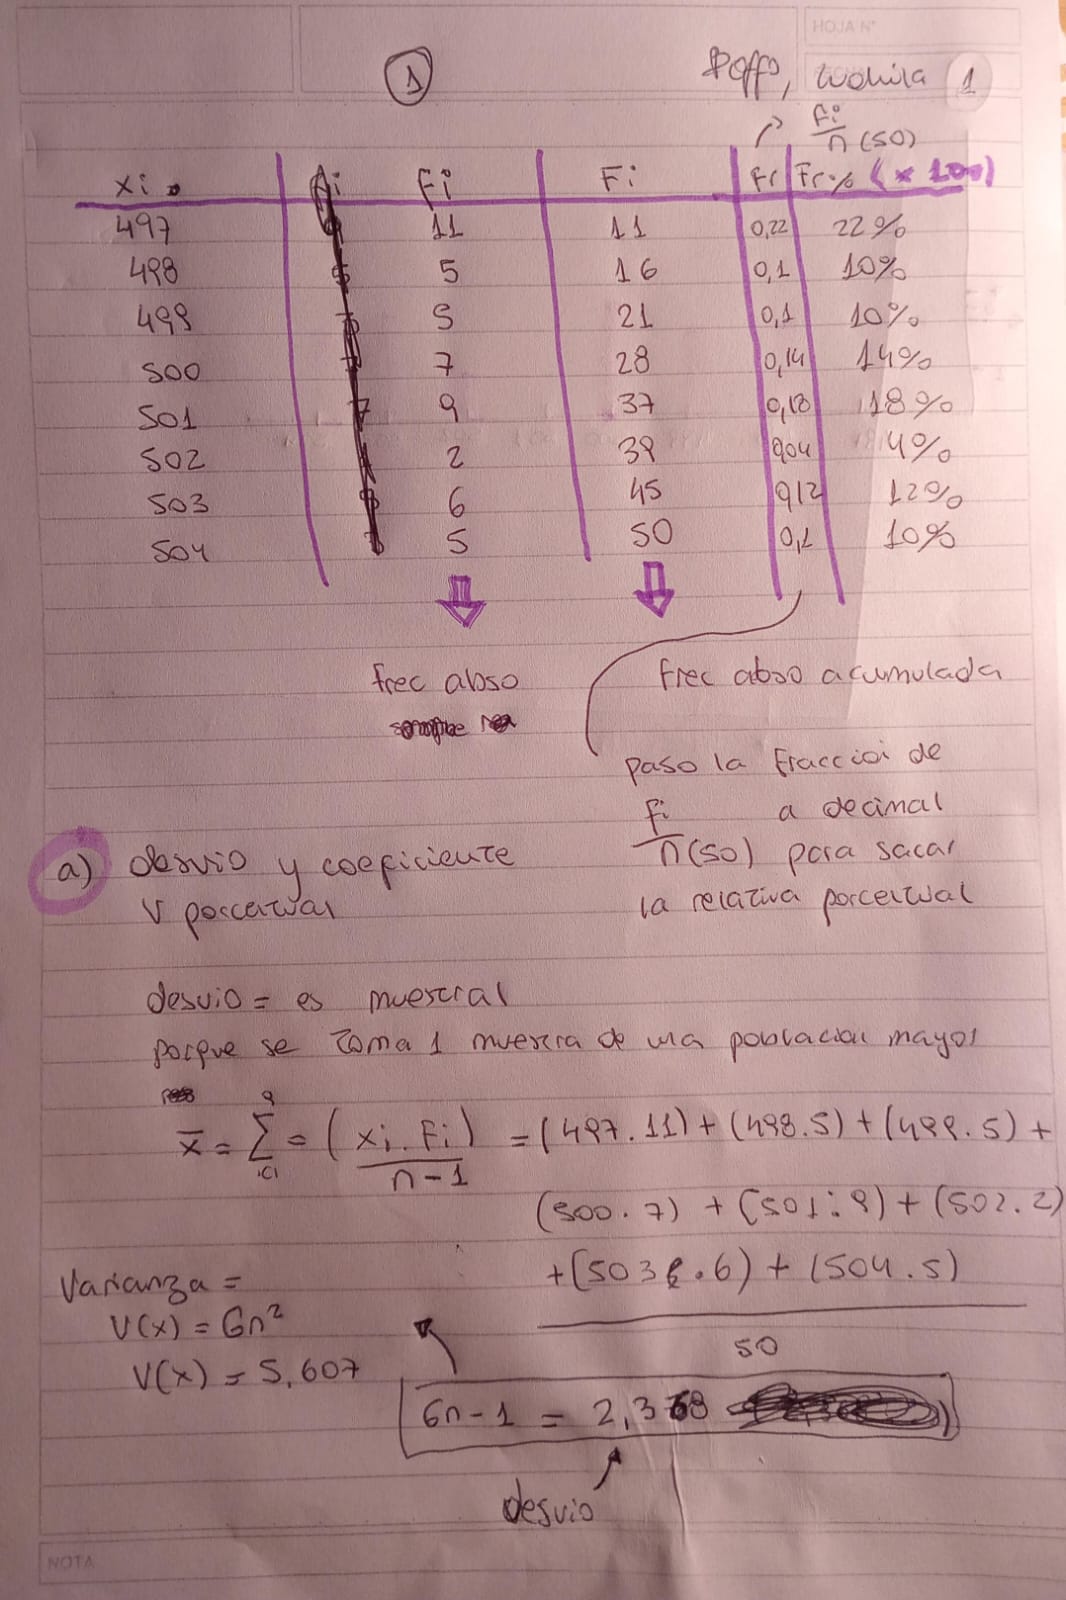 HOJA N°
1
Poffo, 1
Fi/n (50)
xi Fi Fi Fr Fr% (x 100)
497 11 11 0,22 22%
498 5 16 0,1 10%
499 5 21 0,1 10%
500 7 28 0,14 14%
501 9 37 0,18 18%
502 2 39 0,04 4%
503 6 45 0,12 12%
504 5 50 0,1 10%
frec abso
frec abso acumulada
paso la fraccion de
Fi/n(50) a decimal
para sacar
la relativa porcentual
a) desvio y coeficiente
V porcentual
desvio = es muestral
porque se toma 1 muestra de una poblacion mayor
x̄ = Σ = (xi . Fi)/n-1 = (497.11) + (498.5) + (499.5) +
(500.7) + (501.9) + (502.2)
+ (503.6) + (504.5)
50
Varianza =
V(x) = Gn²
V(x) = 5,607
Gn-1 = 2,368
desvio
NOTA